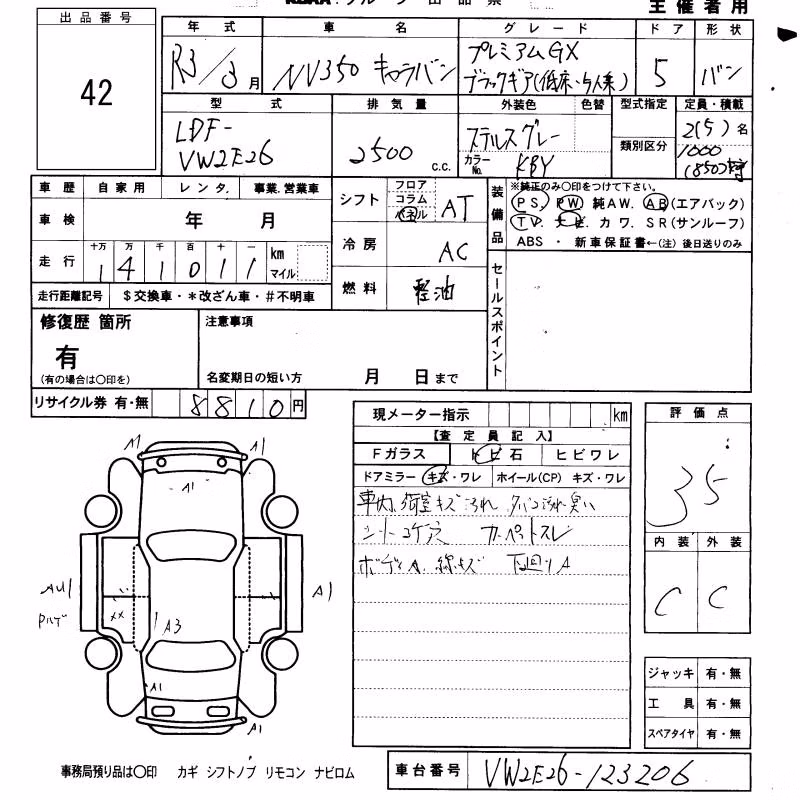 主催者用
出品番号
42
年式 車名 グレード ドア 形状
R3/3月 NV350 キャラバン プレミアムGX
ブラックギア(低床・5人乗) 5 バン
型式 排気量 外装色 色替 型式指定 定員・積載
LDF-
VW2E26 2500 c.c. ステルスグレー
カラーNo. KBY 類別区分 2(5)名
1000
(850)
車歴 自家用 レンタ. 事業.営業車
車検 年 月
走行 十万 万 千 百 十 一
1 4 1 0 1 1 km マイル
走行距離記号 $交換車・*改ざん車・#不明車
シフト フロア コラム パネル AT
冷房 AC
燃料 軽油
装備品
※純正のみ〇印をつけて下さい。
PS. PW 純AW. AB(エアバック)
TV. ナビ. カワ. SR(サンルーフ)
ABS ・ 新車保証書←(注) 後日送りのみ
セールスポイント
修復歴 箇所
有
(有の場合は〇印を)
注意事項
名変期日の短い方 月 日まで
リサイクル券 有・無 8810円
現メーター指示 km
【査定員記入】
Fガラス トビ石 ヒビワレ
ドアミラー キズ・ワレ ホイール(CP) キズ・ワレ
車内、荷室キズ汚れ タバコ汚れ臭い
シートコゲ穴 カーペットスレ
ボディA、線キズ 下回りA
評価点
35
内装 外装
C C
ジャッキ 有・無
工具 有・無
スペアタイヤ 有・無
A1 A1
A1
AU1 A1
Pハゲ
XX A3
A1
A1
事務局預り品は〇印 カギ シフトノブ リモコン ナビロム
車台番号 VW2E26-123206